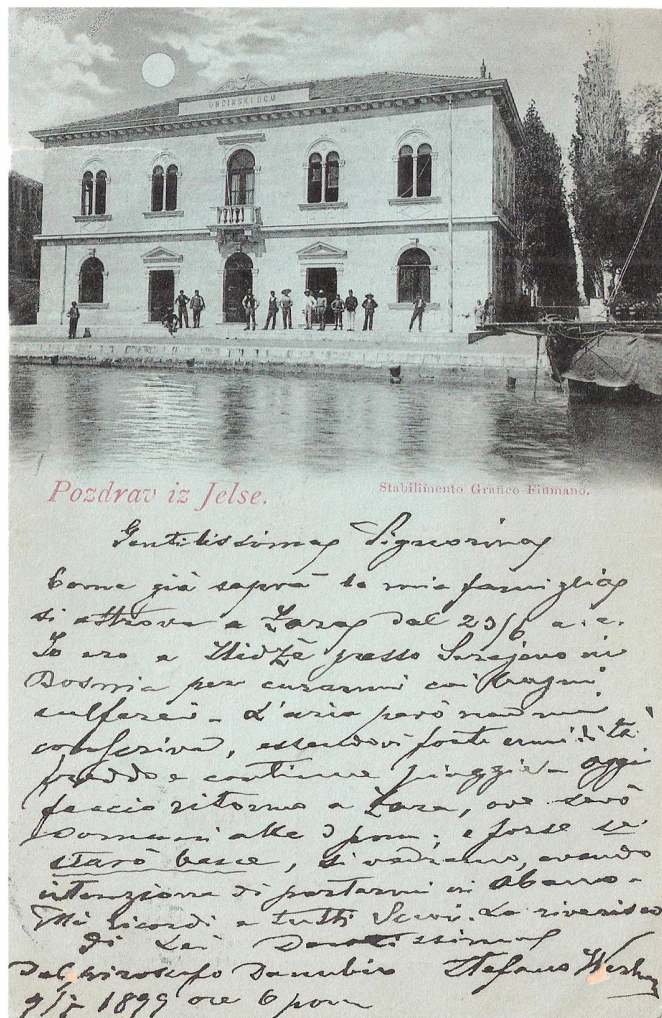 OBĆINSKI DOM
Pozdrav iz Jelse.
Stabilimento Grafico Fiumano.
Gentilissima Signorina
Come già saprà la mia famiglia
si attrova a Zara dal 23/6 a. c.
Io ero a Ilidžè presso Serajevo in
Bosnia per curarmi coi bagni
sulfurei - L'aria però non mi
conferiva, essendovi forte umidità
freddo e continue pioggie. Oggi
faccio ritorno a Zara, ove sarò
domani alle 3 pom; e forse se
starò bene, si vedremo, avendo
intenzione di portarmi in Abano -
Mi ricordi a tutti Suoi. La riverisco
di Lei Devotissimo
Dal piroscafo Danubio Stefano
1899 ore 6 pom